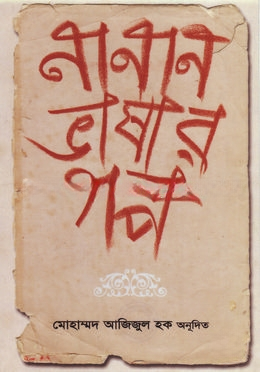 নানান
ভাষার
গল্প
মোহাম্মদ আজিজুল হক অনূদিত